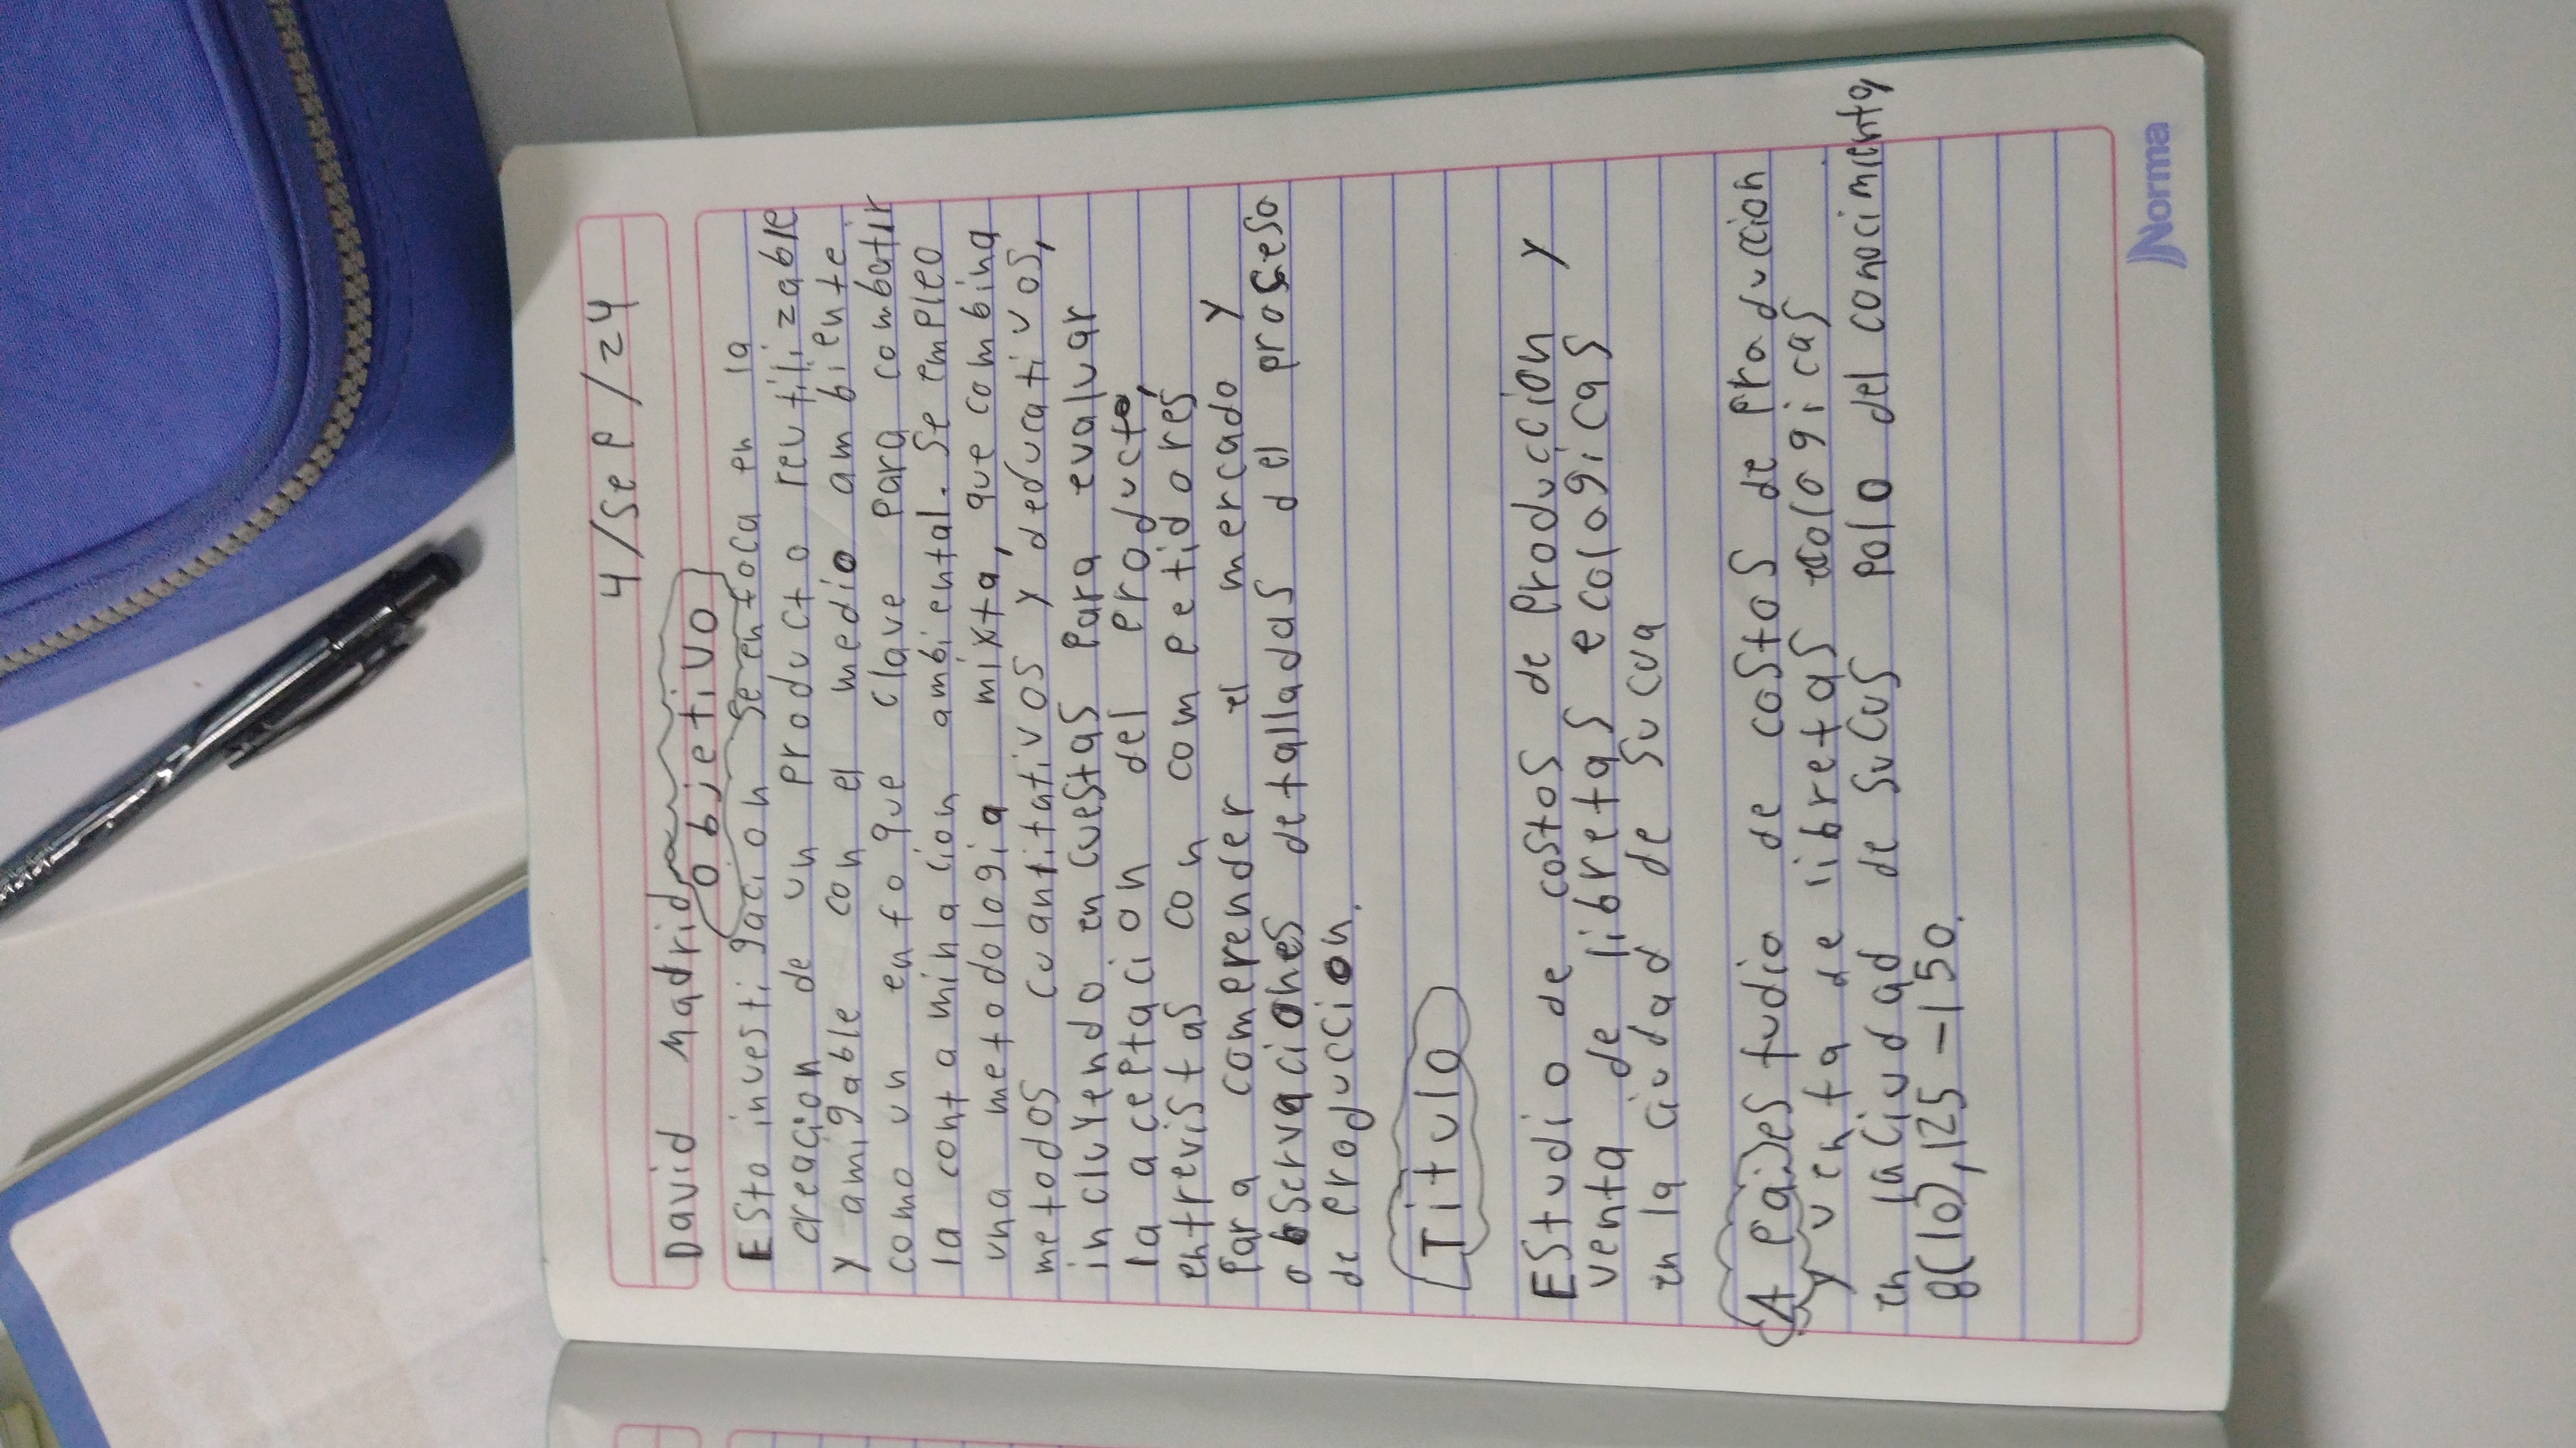 4/sep/24
David Madrid
Objetivo
Esta investigacion se enfoca en la
creacion de un producto reutilizable
y amigable con el medio ambiente
como un enfoque clave para combatir
la contaminacion ambiental. Se empleo
una metodologia mixta, que combina
metodos cuantitativos y deductivos,
incluyendo encuestas para evaluar
la aceptacion del producto,
entrevistas con competidores
para comprender el mercado y
observaciones detalladas del proceso
de produccion.
Titulo
Estudio de costos de Produccion y
venta de libretas ecologicas
en la ciudad de Sucua
(A pa.) estudio de costos de Produccion
y venta de libretas ecologicas
en la Ciudad de Sucus polo del conocimiento,
8(10), 125-150.
Norma